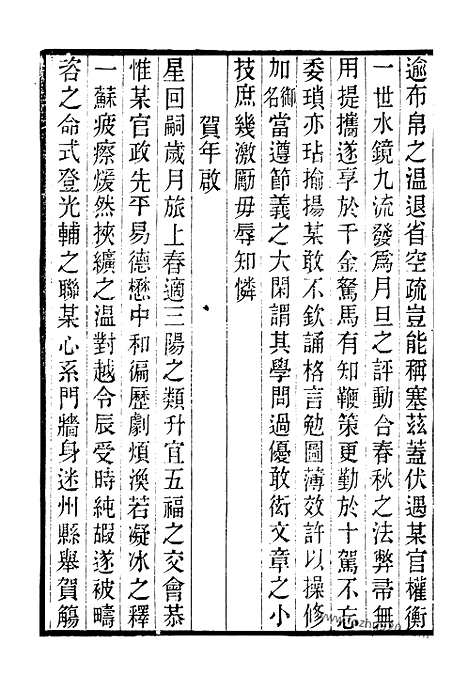 逾布帛之温退省空疏豈能稱塞茲蓋伏遇某官權衡
一世水鏡九流發爲月旦之評動合春秋之法弊帚無
用提攜遂享於千金駑馬有知鞭策更勤於十駕不忘
委瑣亦玷揄揚某敢不欽誦格言勉圖薄效許以操修
加御名當遵節義之大閑謂其學問過優敢衒文章之小
技庶幾激勵毋辱知憐
賀年啟
星回嗣歲月旅上春適三陽之類升宜五福之交會恭
惟某官政先平易德懋中和徧歷劇煩渙若凝冰之釋
一蘇疲瘵煖然挾纊之温對越令辰受時純嘏遂被疇
咨之命式登光輔之聯某心系門牆身迷州縣舉賀觴